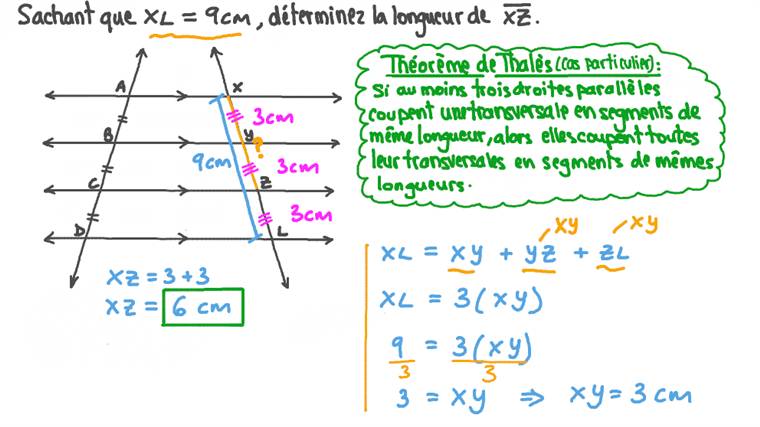 Sachant que XL = 9cm, déterminez la longueur de XZ.
A
X
3cm
B
Y
?
9cm
3cm
C
Z
3cm
D
L
XZ = 3 + 3
XZ = 6 cm
Théorème de Thalès (cas particulier):
Si au moins trois droites parallèles
coupent une transversale en segments de
même longueur, alors elles coupent toutes
leur transversales en segments de mêmes
longueurs.
XY XY
XL = XY + YZ + ZL
XL = 3(XY)
9 = 3(XY)
3 3
3 = XY ⇒ XY = 3 cm